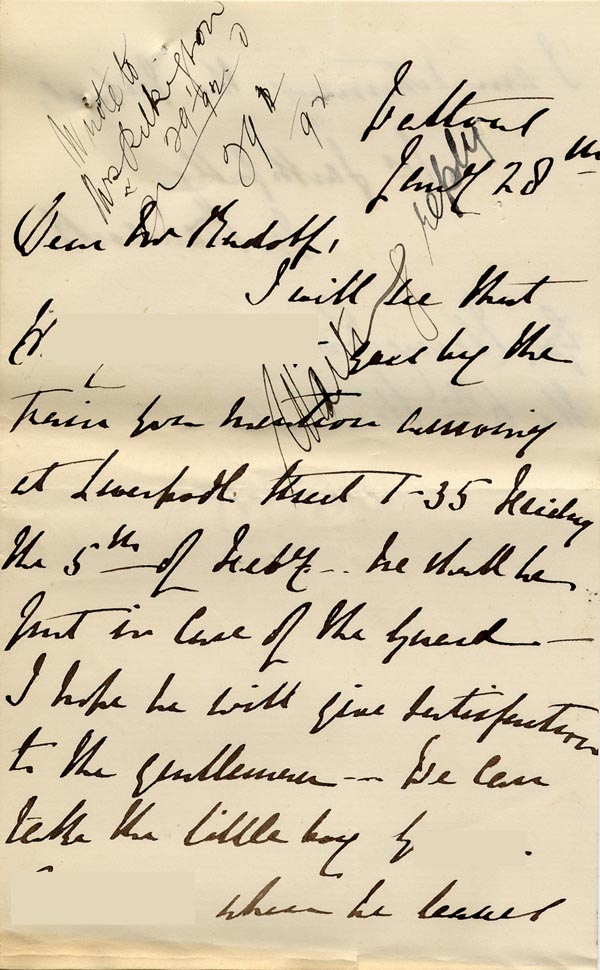 Write to
Mrs Pilkington
29/1/92
29th/92
Wait reply
Jany 28th
Dear Mr Rudolf,
I will see that
goes by the
train you mention arriving
at Liverpool Street 1-35 Friday
the 5th of Feby - He shall be
put in care of the Guard -
I hope he will give satisfaction
to the gentleman - We can
take the little boy
when he leaves